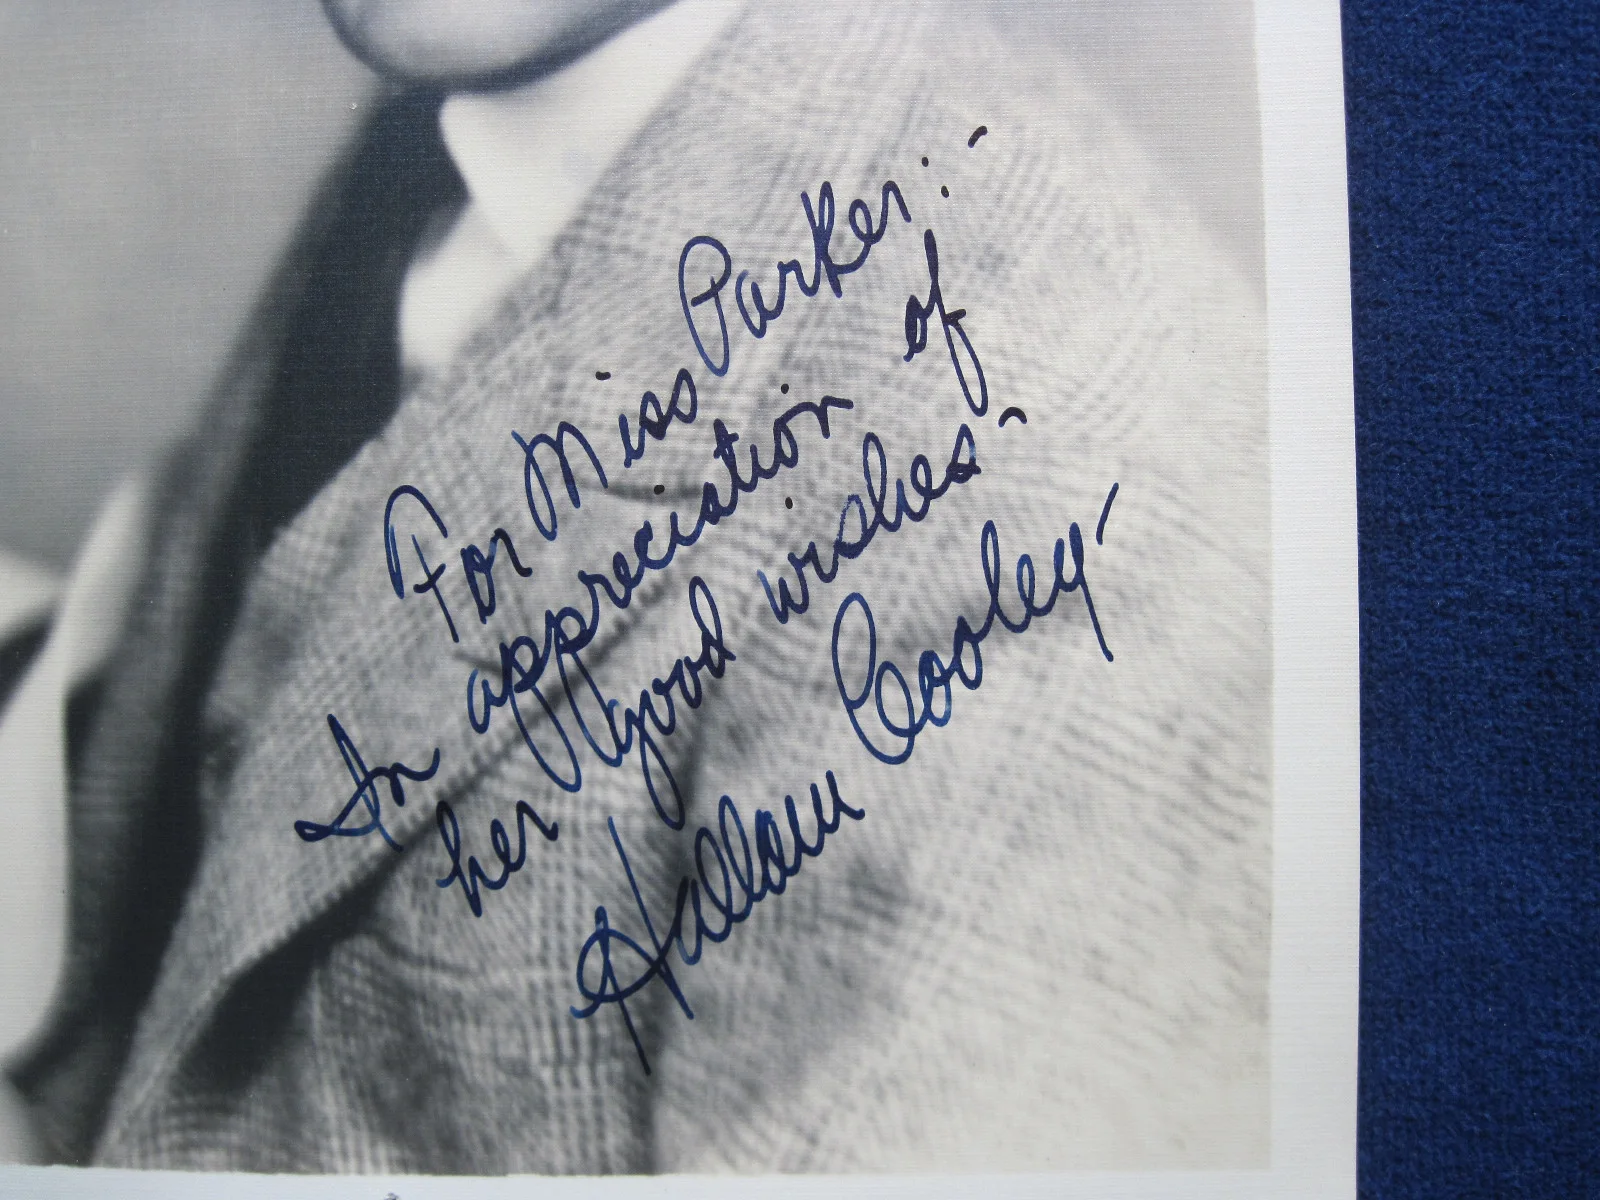 For Miss Parker:-
In appreciation of
her good wishes-
Hallam Cooley-